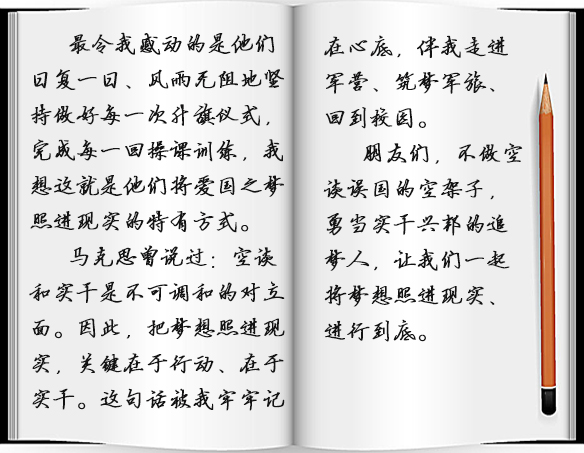 最令我感动的是他们
日复一日、风雨无阻地坚
持做好每一次升旗仪式，
完成每一回操课训练，我
想这就是他们将爱国之梦
照进现实的特有方式。
马克思曾说过：空谈
和实干是不可调和的对立
面。因此，把梦想照进现
实，关键在于行动、在于
实干。这句话被我牢牢记
在心底，伴我走进
军营、筑梦军旅、
回到校园。
朋友们，不做空
谈误国的空架子，
勇当实干兴邦的追
梦人，让我们一起
将梦想照进现实、
进行到底。